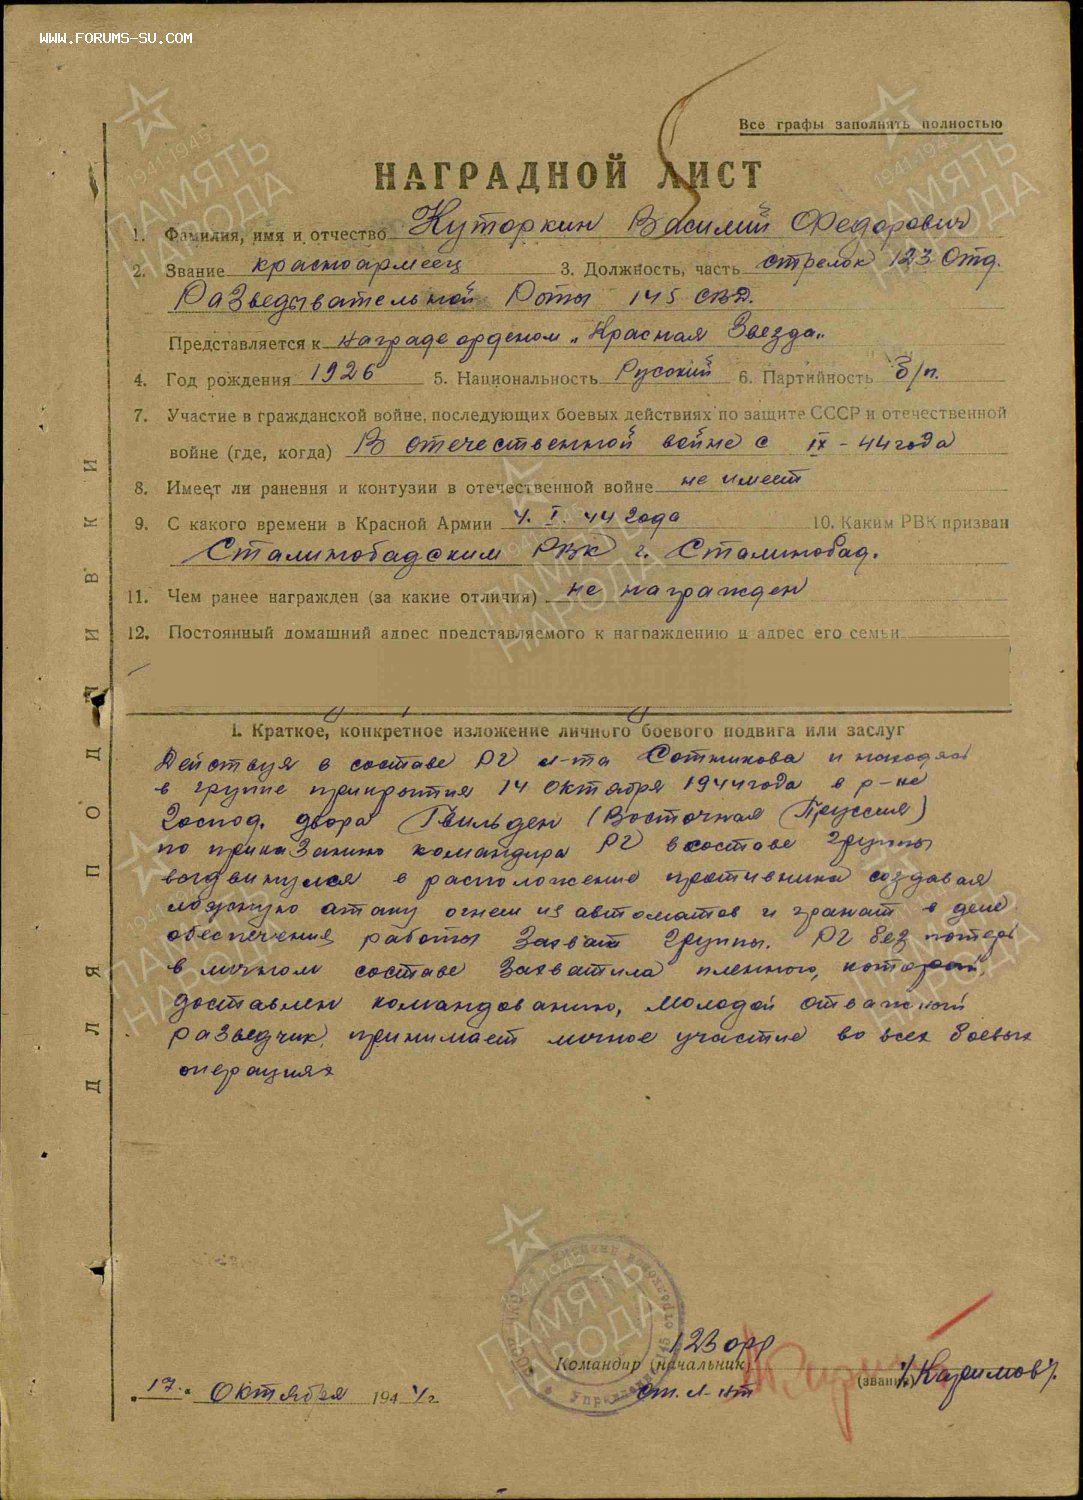 WWW.FORUMS-SU.COM
Все графы заполнять полностью
НАГРАДНОЙ ЛИСТ
1. Фамилия, имя и отчество Куторкин Василий Федорович
2. Звание красноармеец 3. Должность, часть стрелок 123 Отд.
Разведывательной Роты 145 СКД.
Представляется к награде орденом „Красная Звезда„
4. Год рождения 1926 5. Национальность Русский 6. Партийность б/п.
7. Участие в гражданской войне, последующих боевых действиях по защите СССР и отечественной
войне (где, когда) В отечественной войне с IX - 44 года
8. Имеет ли ранения и контузии в отечественной войне не имеет
9. С какого времени в Красной Армии 4. I. 44 года 10. Каким РВК призван
Сталинобадским РВК г. Сталинобад.
11. Чем ранее награжден (за какие отличия) не награжден
12. Постоянный домашний адрес представляемого к награждению и адрес его семьи
I. Краткое, конкретное изложение личного боевого подвига или заслуг
Действуя в составе РГ л-та Сотникова и находясь
в группе прикрытия 14 октября 1944 года в р-не
Господ. двора Гвильден (Восточная Пруссия)
по приказанию командира РГ в составе группы
выдвинулся в расположение противника создавая
ложную атаку огнем из автоматов и гранат в деле
обеспечения работы Захват группы. РГ без потерь
в личном составе Захватила пленного, который
доставлен командованию, молодой отважный
разведчик, принимает личное участие во всех боевых
операциях
123 орр
Командир (начальник)
(звание) /Каримов/.
ст. л-нт
17. октября 1944 г.
ДЛЯ ПОДШИВКИ
1941-1945
ПАМЯТЬ
НАРОДА